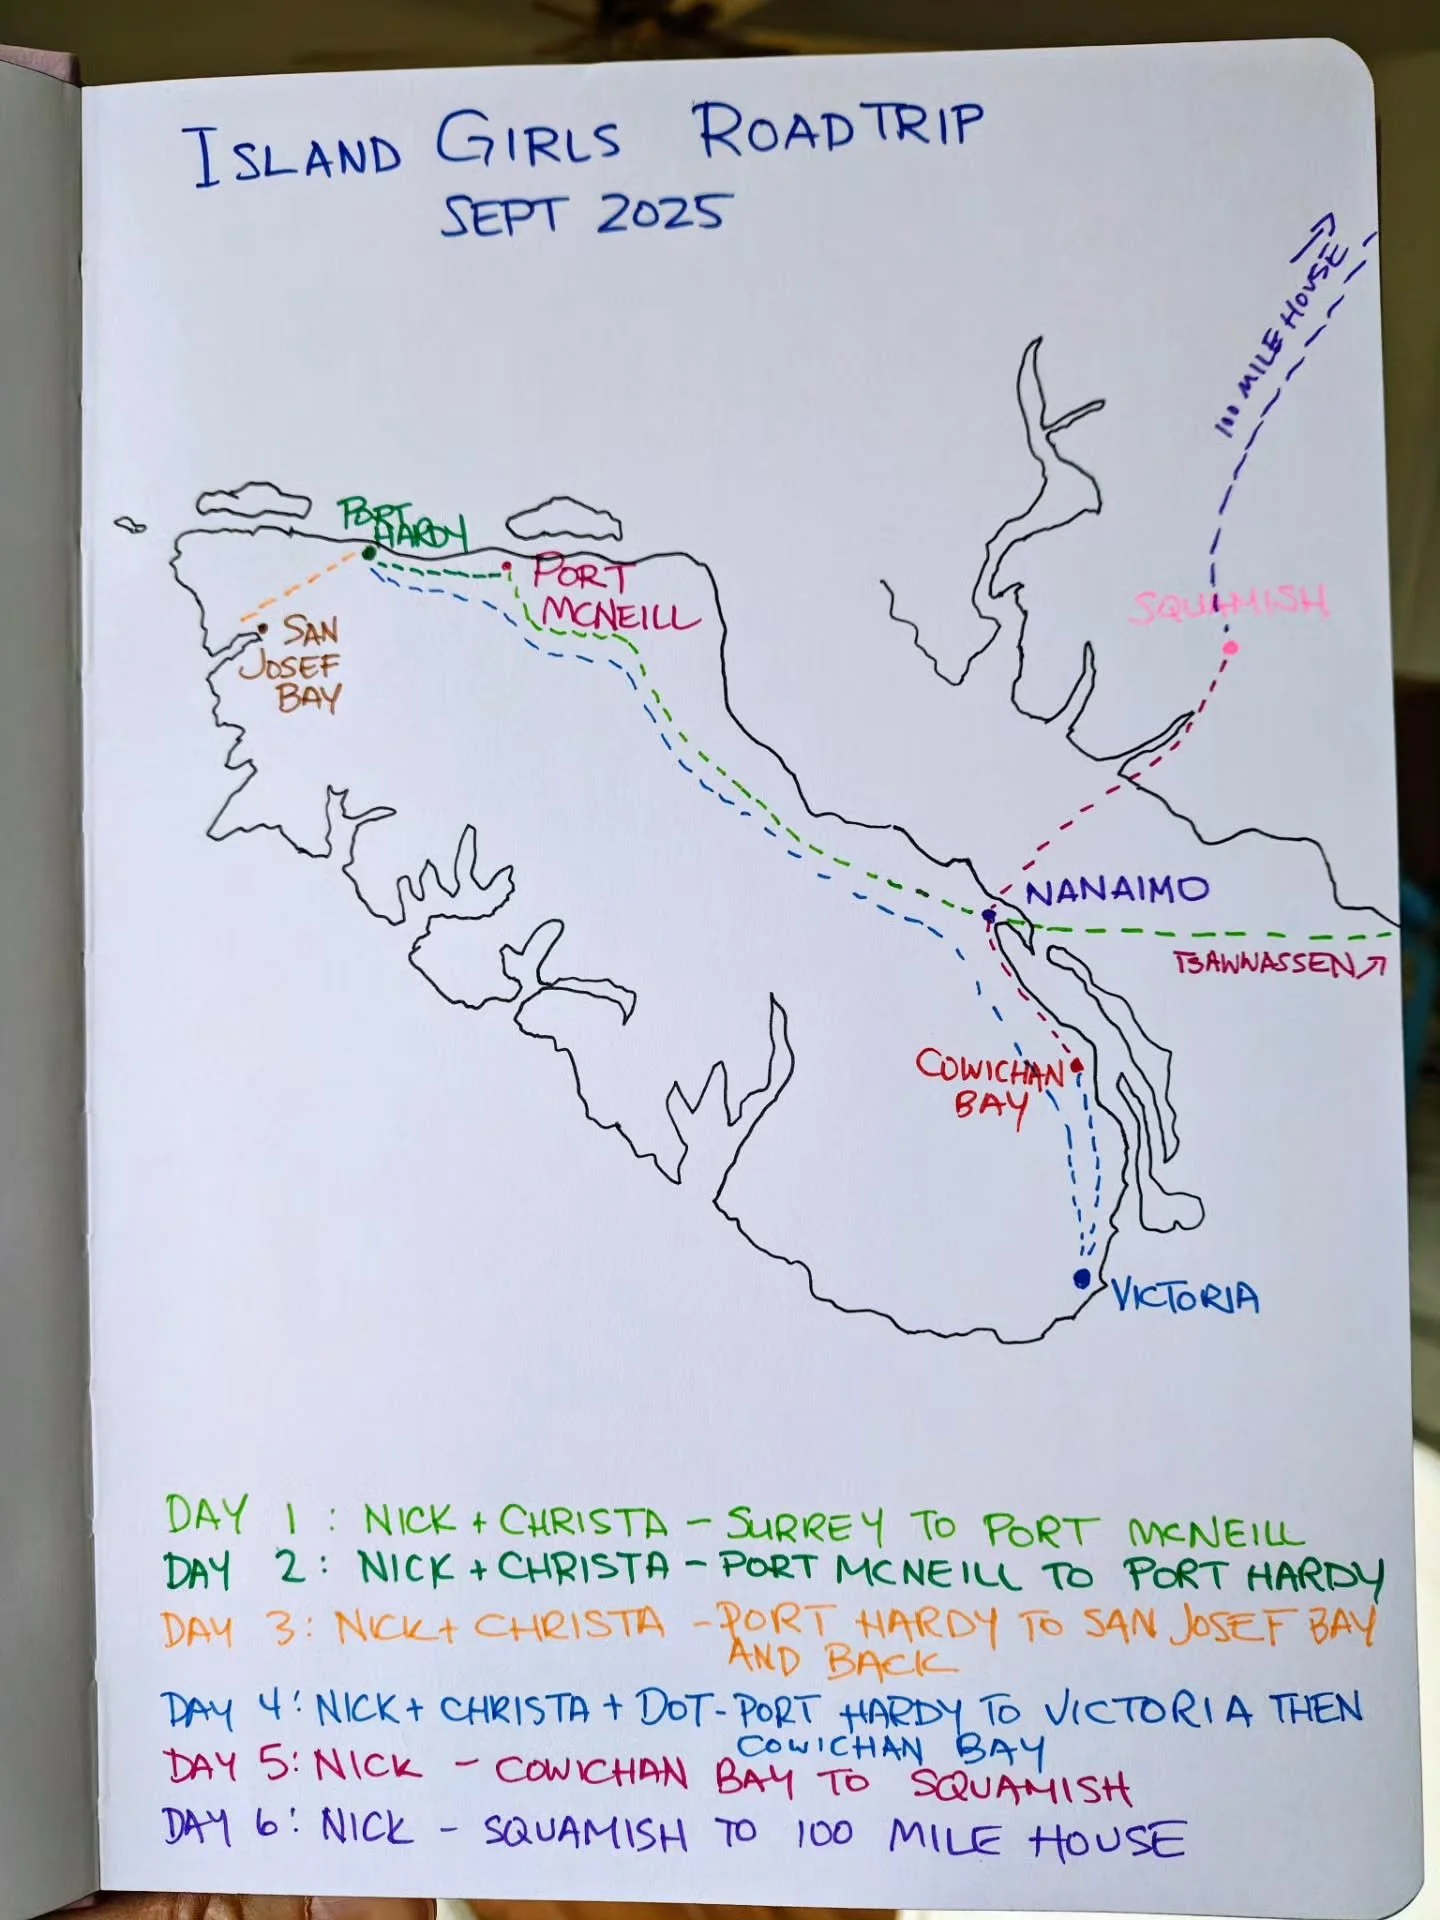 ISLAND GIRLS ROADTRIP
SEPT 2025
100 MILE HOUSE
PORT
HARDY
PORT
MCNEILL
SQUAMISH
SAN
JOSEF
BAY
NANAIMO
TSAWWASSEN
COWICHAN
BAY
VICTORIA
DAY 1: NICK + CHRISTA - SURREY TO PORT MCNEILL
DAY 2: NICK + CHRISTA - PORT MCNEILL TO PORT HARDY
DAY 3: NICK + CHRISTA - PORT HARDY TO SAN JOSEF BAY
AND BACK
DAY 4: NICK + CHRISTA + DOT - PORT HARDY TO VICTORIA THEN
COWICHAN BAY
DAY 5: NICK - COWICHAN BAY TO SQUAMISH
DAY 6: NICK - SQUAMISH TO 100 MILE HOUSE